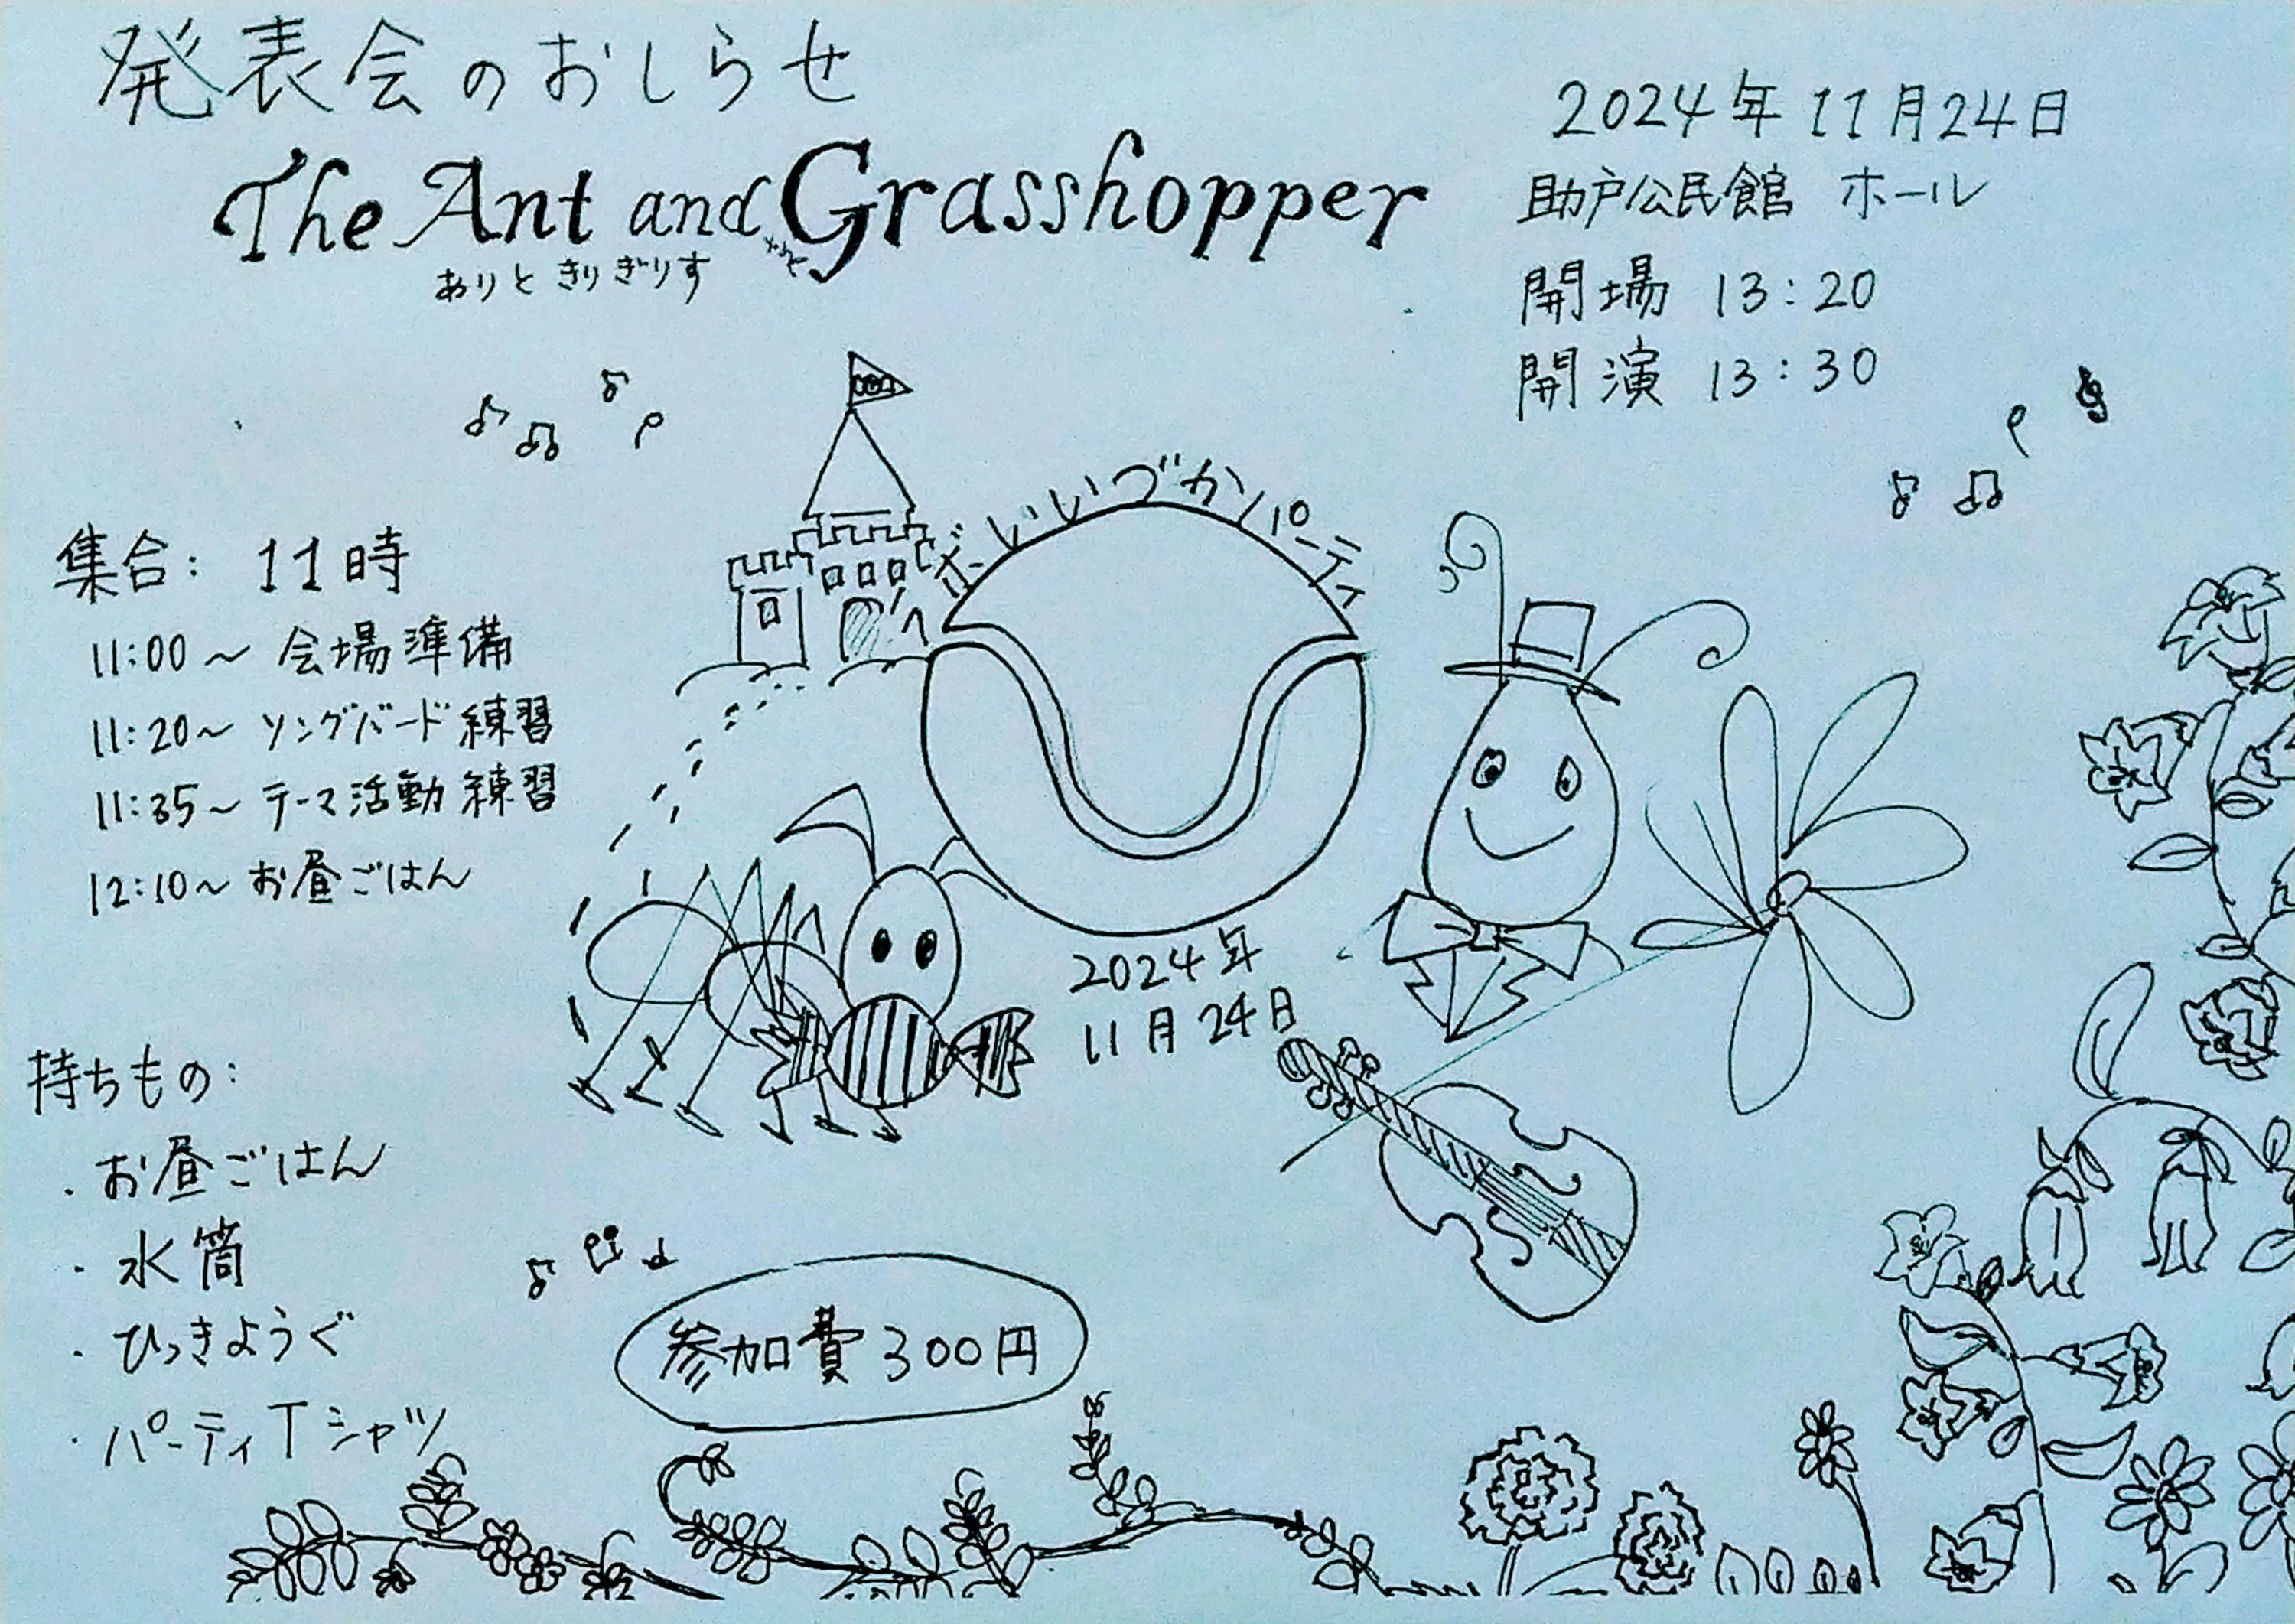 発表会のおしらせ
The Ant and Grasshopper
ありときりぎりす
2024年11月24日
助戸公民館 ホール
開場 13:20
開演 13:30
集合: 11時
11:00〜 会場準備
11:20〜 ソングバード練習
11:35〜 テーマ活動練習
12:10〜 お昼ごはん
いいづかパーティ
2024年
11月24日
持ちもの:
・お昼ごはん
・水筒
・ひっきようぐ
・パーティTシャツ
参加費300円